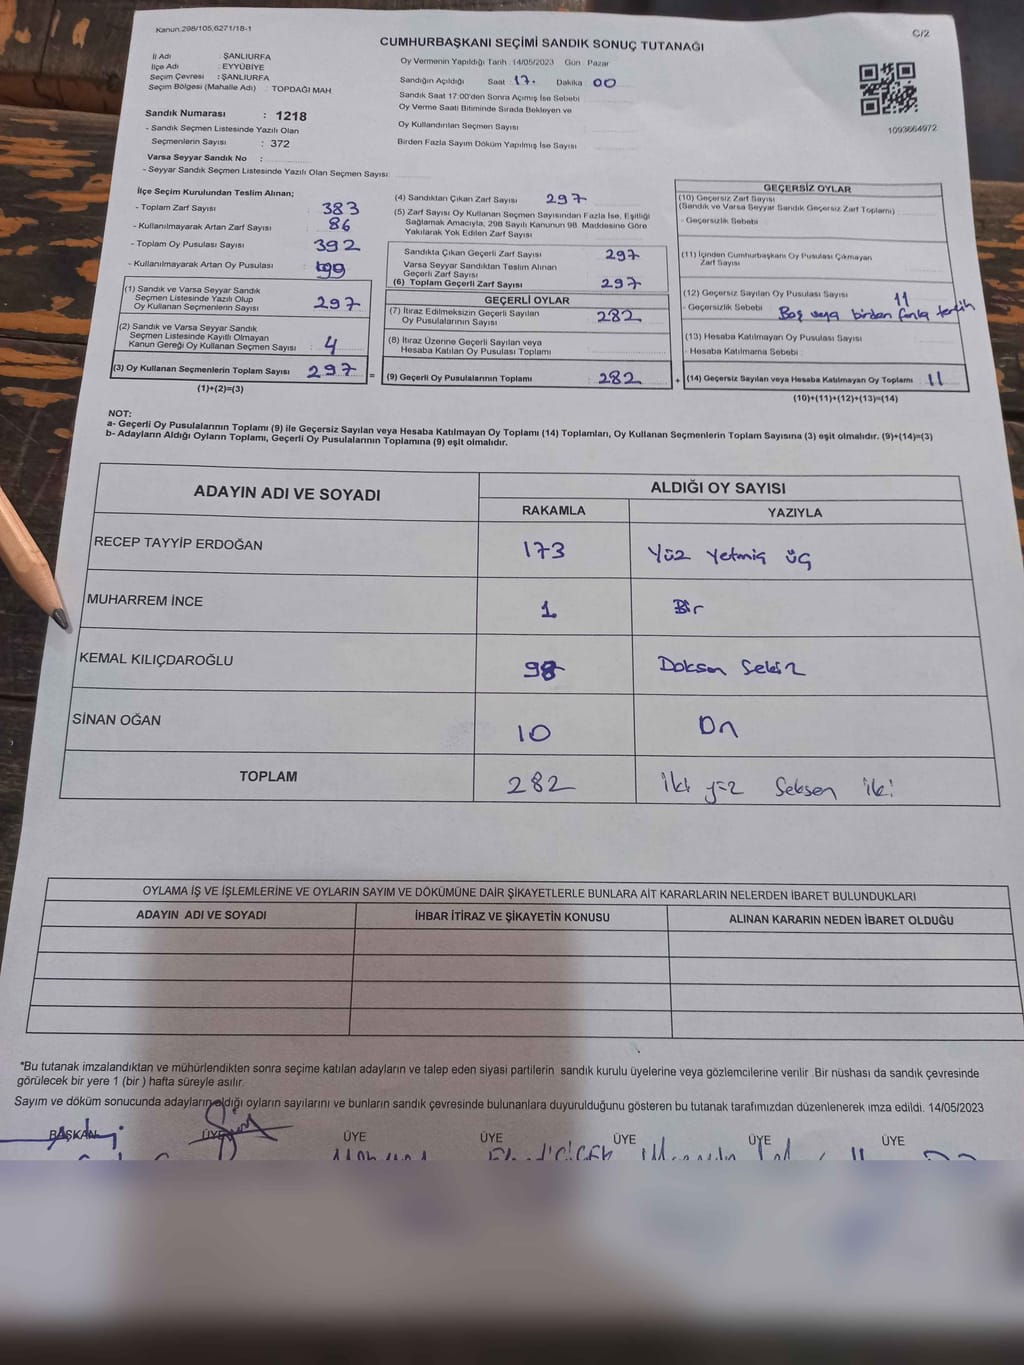 Kanun.298/105,6271/18-1
C/2
CUMHURBAŞKANI SEÇİMİ SANDIK SONUÇ TUTANAĞI
İl Adı : ŞANLIURFA
İlçe Adı : EYYÜBİYE
Seçim Çevresi : ŞANLIURFA
Seçim Bölgesi (Mahalle Adı) : TOPDAĞI MAH
Oy Vermenin Yapıldığı Tarih : 14/05/2023 Gün : Pazar
Sandığın Açıldığı Saat 17. Dakika 00
Sandık Saat 17:00'den Sonra Açımış İse Sebebi
Oy Verme Saati Bitiminde Sırada Bekleyen ve
Oy Kullandırılan Seçmen Sayısı
Birden Fazla Sayım Döküm Yapılmış İse Sayısı
1093664972
Sandık Numarası : 1218
- Sandık Seçmen Listesinde Yazılı Olan
Seçmenlerin Sayısı : 372
Varsa Seyyar Sandık No :
- Seyyar Sandık Seçmen Listesinde Yazılı Olan Seçmen Sayısı:
İlçe Seçim Kurulundan Teslim Alınan;
- Toplam Zarf Sayısı : 383
- Kullanılmayarak Artan Zarf Sayısı : 86
- Toplam Oy Pusulası Sayısı : 392
- Kullanılmayarak Artan Oy Pusulası
(1) Sandık ve Varsa Seyyar Sandık
Seçmen Listesinde Yazılı Olup
Oy Kullanan Seçmenlerin Sayısı : 297
(2) Sandık ve Varsa Seyyar Sandık
Seçmen Listesinde Kayıtlı Olmayan
Kanun Gereği Oy Kullanan Seçmen Sayısı : 4
(3) Oy Kullanan Seçmenlerin Toplam Sayısı : 297
(1)+(2)=(3)
(4) Sandıktan Çıkan Zarf Sayısı : 297
(5) Zarf Sayısı Oy Kullanan Seçmen Sayısından Fazla İse, Eşitliği
Sağlamak Amacıyla, 298 Sayılı Kanunun 98. Maddesine Göre
Yakılarak Yok Edilen Zarf Sayısı
Sandıkta Çıkan Geçerli Zarf Sayısı : 297
Varsa Seyyar Sandıktan Teslim Alınan
Geçerli Zarf Sayısı
(6) Toplam Geçerli Zarf Sayısı : 297
GEÇERLİ OYLAR
(7) İtiraz Edilmeksizin Geçerli Sayılan
Oy Pusulalarının Sayısı : 282
(8) İtiraz Üzerine Geçerli Sayılan veya
Hesaba Katılan Oy Pusulası Toplamı
= (9) Geçerli Oy Pusulalarının Toplamı : 282
GEÇERSİZ OYLAR
(10) Geçersiz Zarf Sayısı
(Sandık ve Varsa Seyyar Sandık Geçersiz Zarf Toplamı) :
- Geçersizlik Sebebi :
(11) İçinden Cumhurbaşkanı Oy Pusulası Çıkmayan
Zarf Sayısı
(12) Geçersiz Sayılan Oy Pusulası Sayısı : 11
- Geçersizlik Sebebi : Boş veya birden fazla tercih
(13) Hesaba Katılmayan Oy Pusulası Sayısı :
- Hesaba Katılmama Sebebi :
+ (14) Geçersiz Sayılan veya Hesaba Katılmayan Oy Toplamı : 11
(10)+(11)+(12)+(13)=(14)
NOT:
a- Geçerli Oy Pusulalarının Toplamı (9) ile Geçersiz Sayılan veya Hesaba Katılmayan Oy Toplamı (14) Toplamları, Oy Kullanan Seçmenlerin Toplam Sayısına (3) eşit olmalıdır. (9)+(14)=(3)
b- Adayların Aldığı Oyların Toplamı, Geçerli Oy Pusulalarının Toplamına (9) eşit olmalıdır.
ADAYIN ADI VE SOYADI
ALDIĞI OY SAYISI
RAKAMLA YAZIYLA
RECEP TAYYİP ERDOĞAN 173 Yüz Yetmiş üç
MUHARREM İNCE 1 Bir
KEMAL KILIÇDAROĞLU 98 Doksan Sekiz
SİNAN OĞAN 10 On
TOPLAM 282 iki yüz Seksen iki
OYLAMA İŞ VE İŞLEMLERİNE VE OYLARIN SAYIM VE DÖKÜMÜNE DAİR ŞİKAYETLERLE BUNLARA AİT KARARLARIN NELERDEN İBARET BULUNDUKLARI
ADAYIN ADI VE SOYADI İHBAR İTİRAZ VE ŞİKAYETİN KONUSU ALINAN KARARIN NEDEN İBARET OLDUĞU
*Bu tutanak imzalandıktan ve mühürlendikten sonra seçime katılan adayların ve talep eden siyasi partilerin sandık kurulu üyelerine veya gözlemcilerine verilir .Bir nüshası da sandık çevresinde
görülecek bir yere 1 (bir ) hafta süreyle asılır.
Sayım ve döküm sonucunda adayların aldığı oyların sayılarını ve bunların sandık çevresinde bulunanlara duyurulduğunu gösteren bu tutanak tarafımızdan düzenlenerek imza edildi. 14/05/2023
BAŞKAN ÜYE ÜYE ÜYE ÜYE ÜYE ÜYE